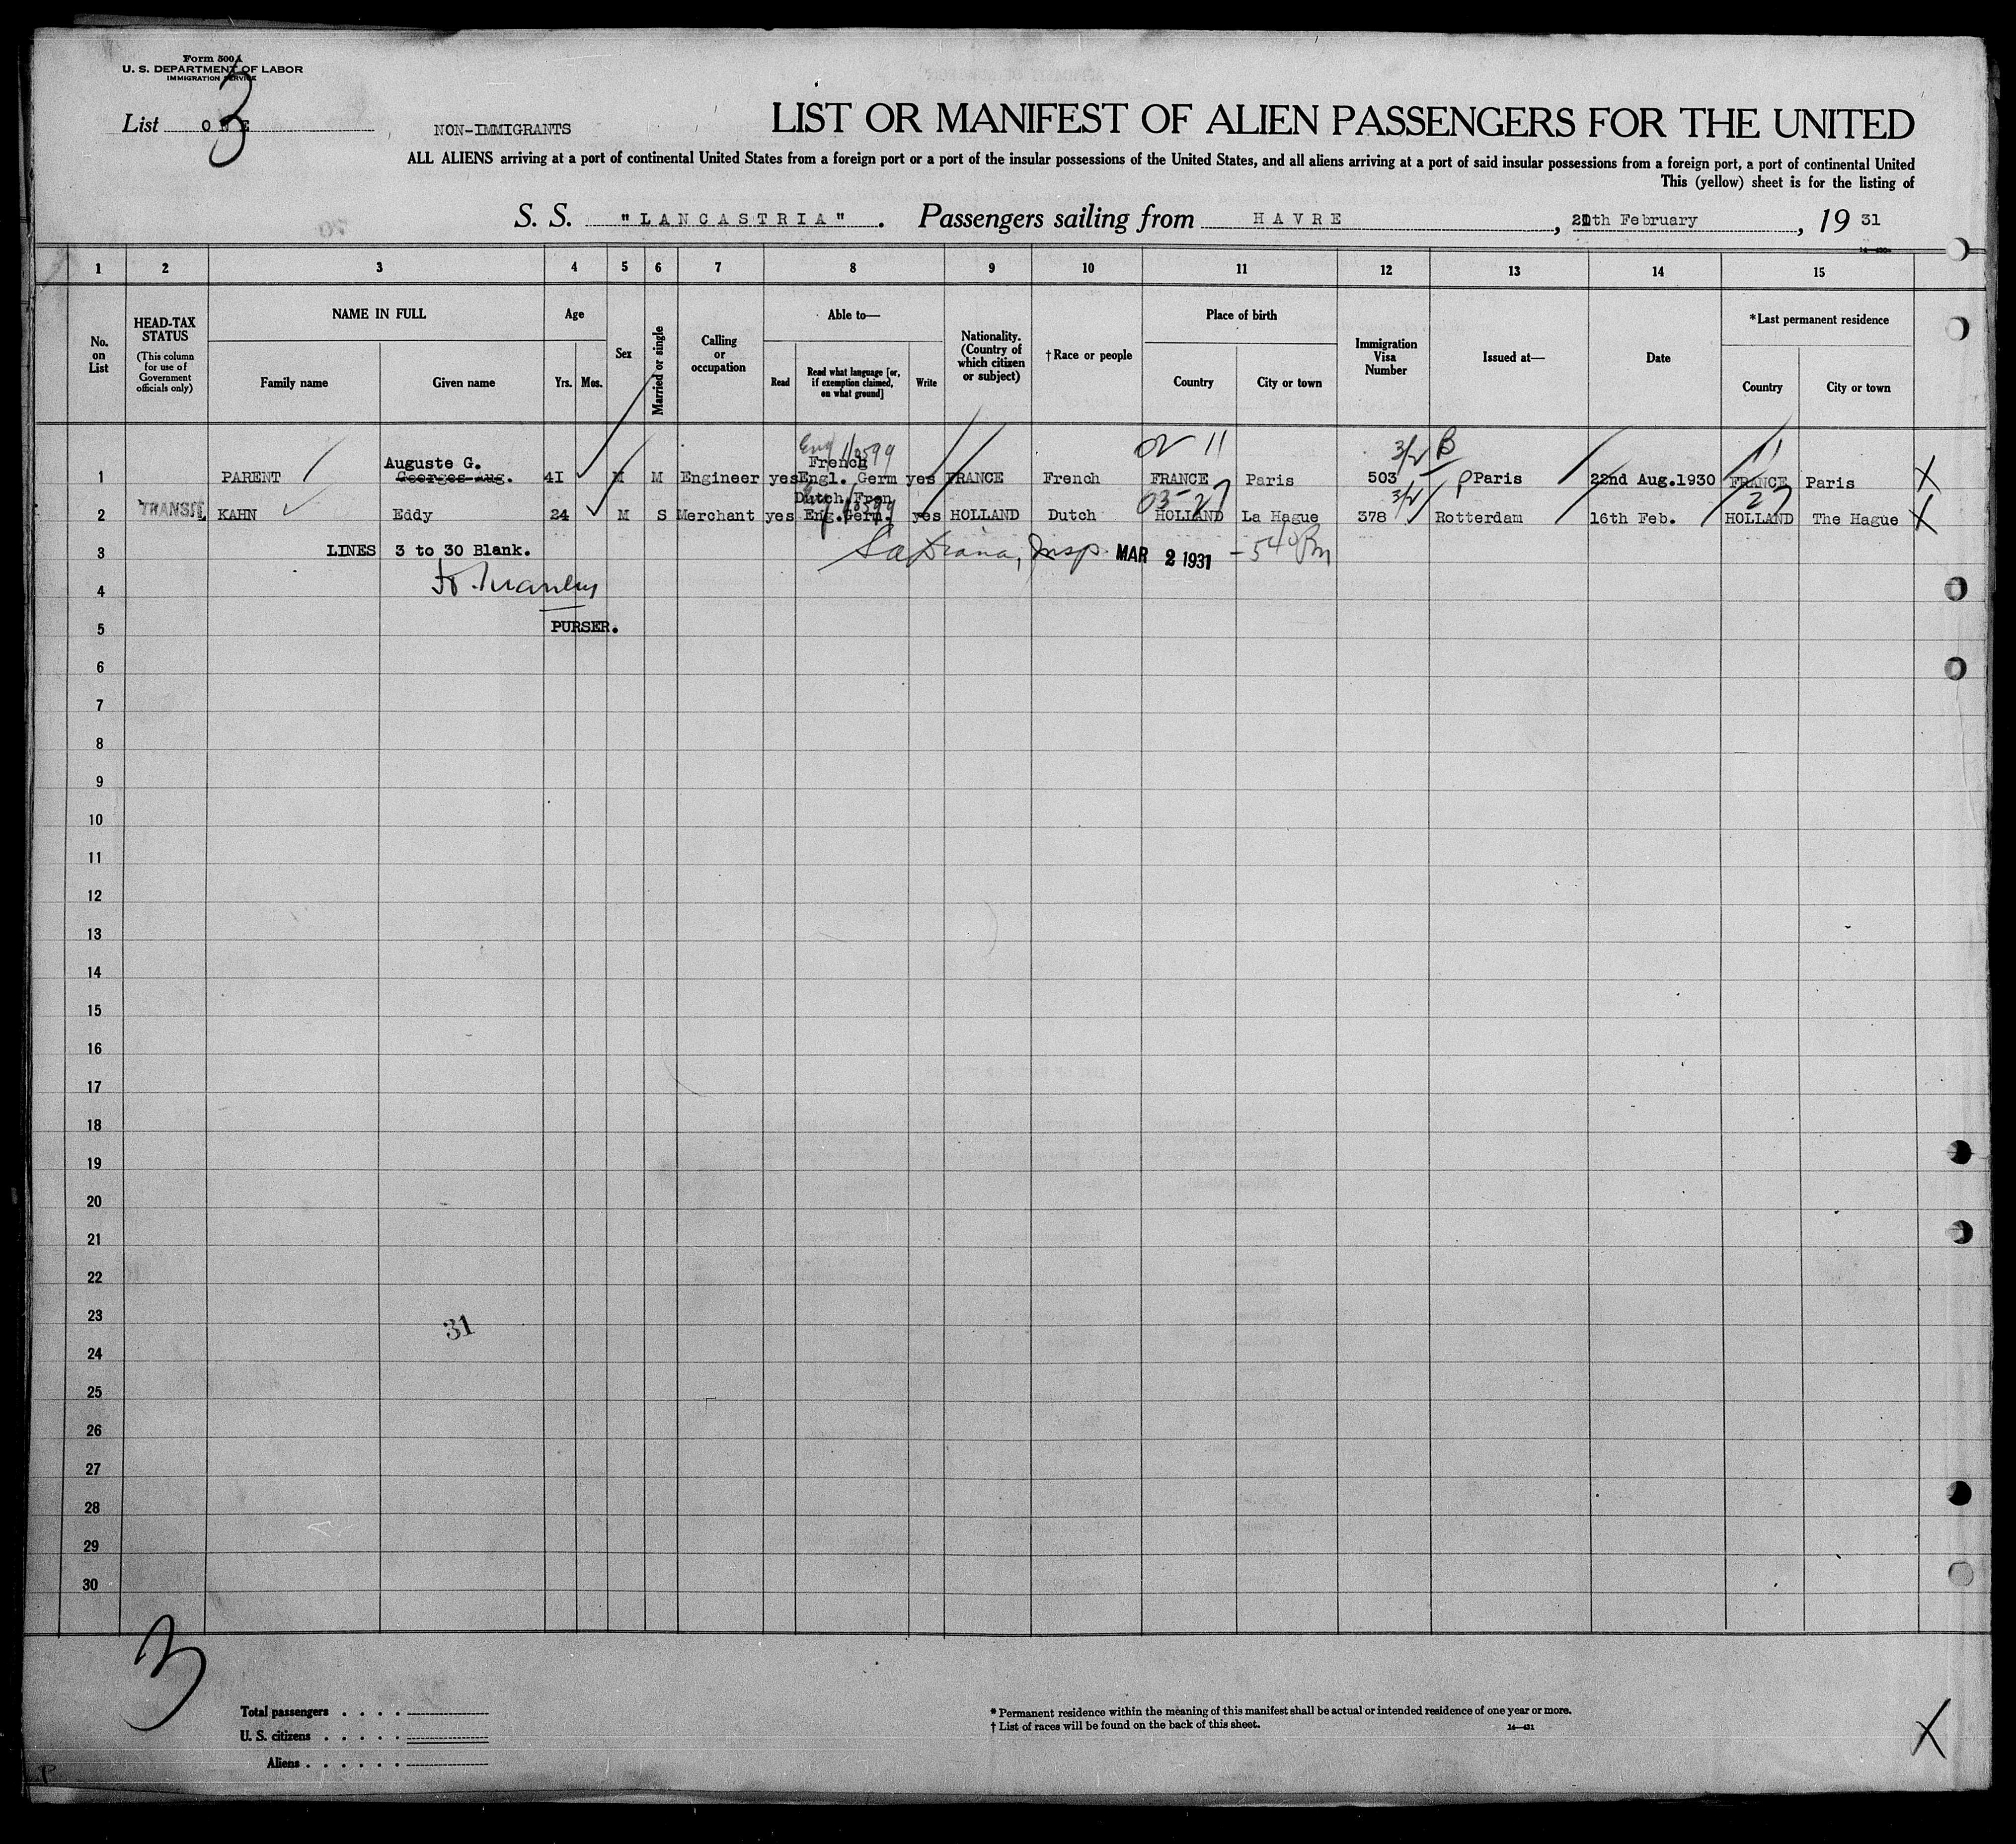 Form 500 A
U. S. DEPARTMENT OF LABOR
IMMIGRATION SERVICE
3
List ONE
NON-IMMIGRANTS
LIST OR MANIFEST OF ALIEN PASSENGERS FOR THE UNITED
ALL ALIENS arriving at a port of continental United States from a foreign port or a port of the insular possessions of the United States, and all aliens arriving at a port of said insular possessions from a foreign port, a port of continental United
This (yellow) sheet is for the listing of
S. S. "LANCASTRIA". Passengers sailing from HAVRE, 20th February, 19 31
1 2 3 4 5 6 7 8 9 10 11 12 13 14 15
No. on List
HEAD-TAX STATUS
(This column for use of Government officials only)
NAME IN FULL
Family name Given name
Age
Yrs. Mos.
Sex
Married or single
Calling or occupation
Able to—
Read
Read what language [or, if exemption claimed, on what ground]
Write
Nationality. (Country of which citizen or subject)
† Race or people
Place of birth
Country City or town
Immigration Visa Number
Issued at—
Date
*Last permanent residence
Country City or town
Eng 11 3/2 B 11
Auguste G. French
1 PARENT Georges Aug. 41 M M Engineer yes Engl. Germ yes FRANCE French FRANCE Paris 503 Paris 22nd Aug.1930 FRANCE Paris X
Dutch, Fren 03-27 3/2 27
TRANSIT
2 KAHN Eddy 24 M S Merchant yes Eng. Germ. yes HOLLAND Dutch HOLLAND La Hague 378 Rotterdam 16th Feb. HOLLAND The Hague X
3 LINES 3 to 30 Blank. Insp. MAR 2 1931
4
5 PURSER.
6
7
8
9
10
11
12
13
14
15
16
17
18
19
20
21
22
23 31
24
25
26
27
28
29
30
3
Total passengers . . . .
U. S. citizens . . . . .
Aliens . . . . . .
* Permanent residence within the meaning of this manifest shall be actual or intended residence of one year or more.
† List of races will be found on the back of this sheet.
14—431
X
P